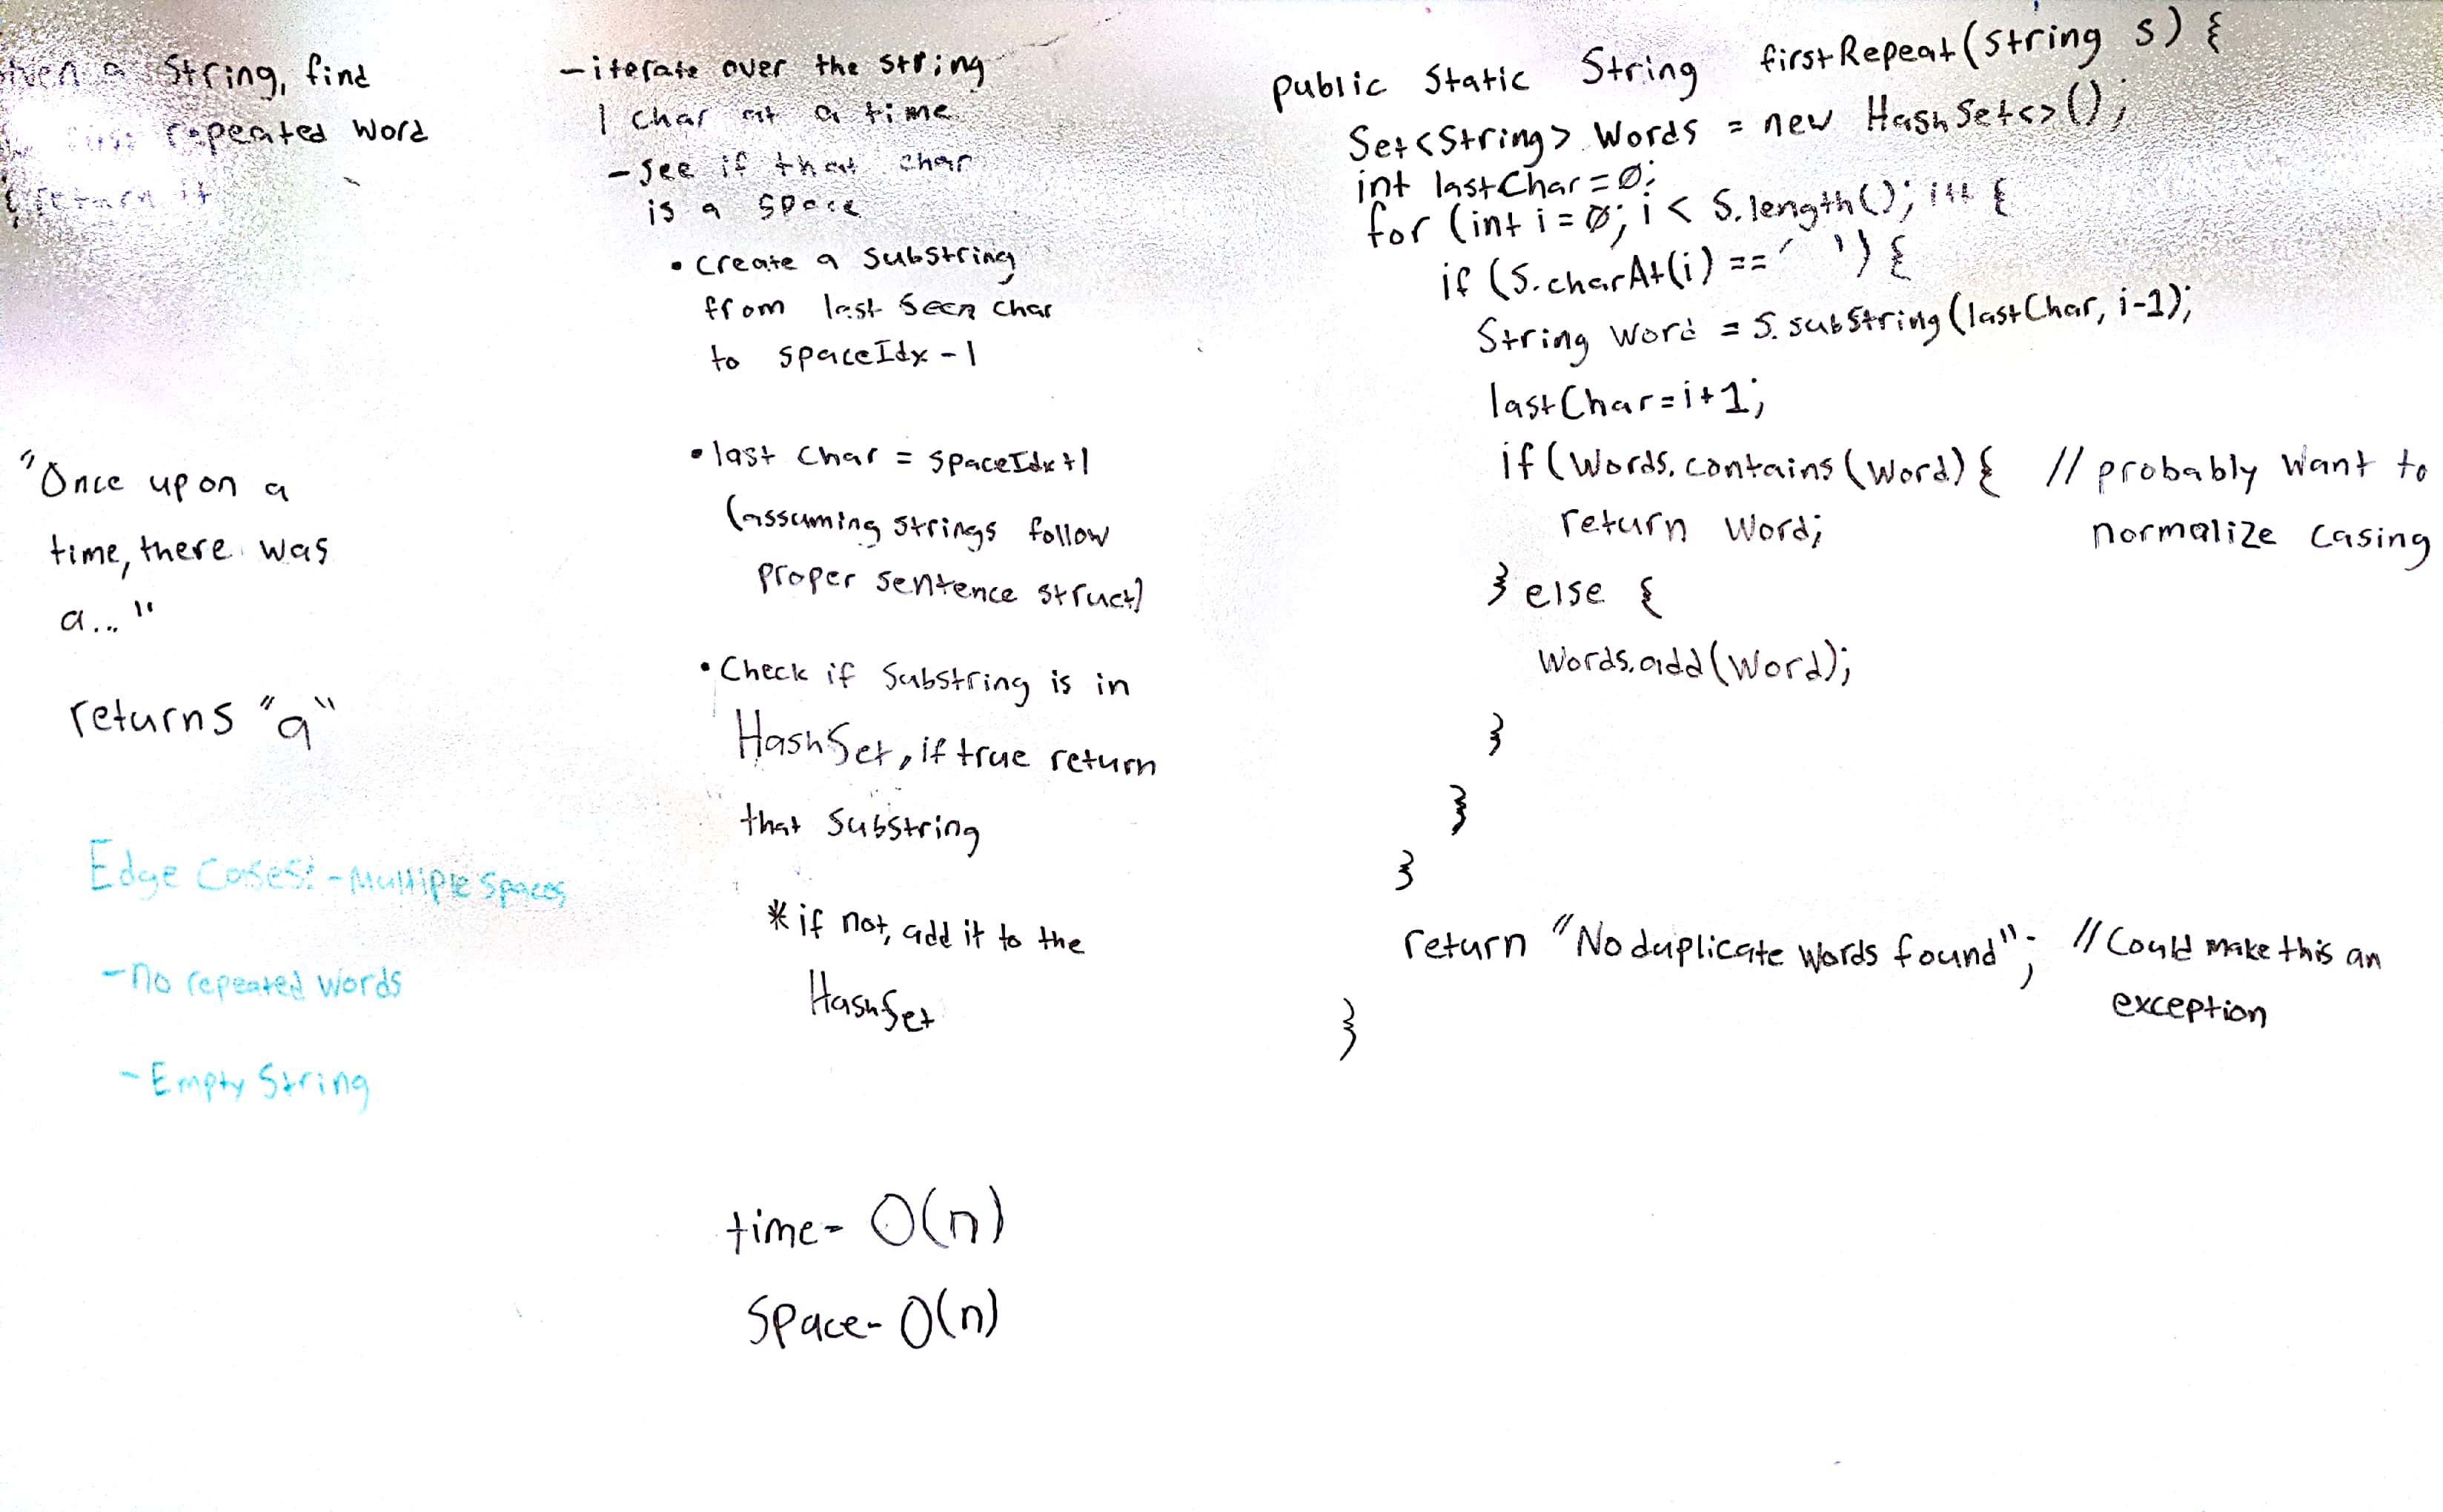 a String, find
repeated word
& return it
"Once upon a
time, there was
a..."
returns "a"
Edge Cases: - Multiple Spaces
- no repeated words
- Empty String
- iterate over the string
1 char at a time
- see if that char
is a space
• create a substring
from last seen char
to spaceIdx - 1
• last char = spaceIdx+1
(assuming strings follow
proper sentence struct)
• Check if substring is in
HashSet, if true return
that substring
* if not, add it to the
HashSet
time - O(n)
Space - O(n)
public static String firstRepeat(String s) {
Set<String> words = new HashSet<>();
int lastChar = 0;
for (int i = 0; i < s.length(); i++ {
if (s.charAt(i) == ' ') {
String word = s.substring(lastChar, i-1);
lastChar = i+1;
if (words.contains(word) { // probably want to
return word; normalize casing
} else {
words.add(word);
}
}
}
return "No duplicate words found"; // Could make this an
exception
}